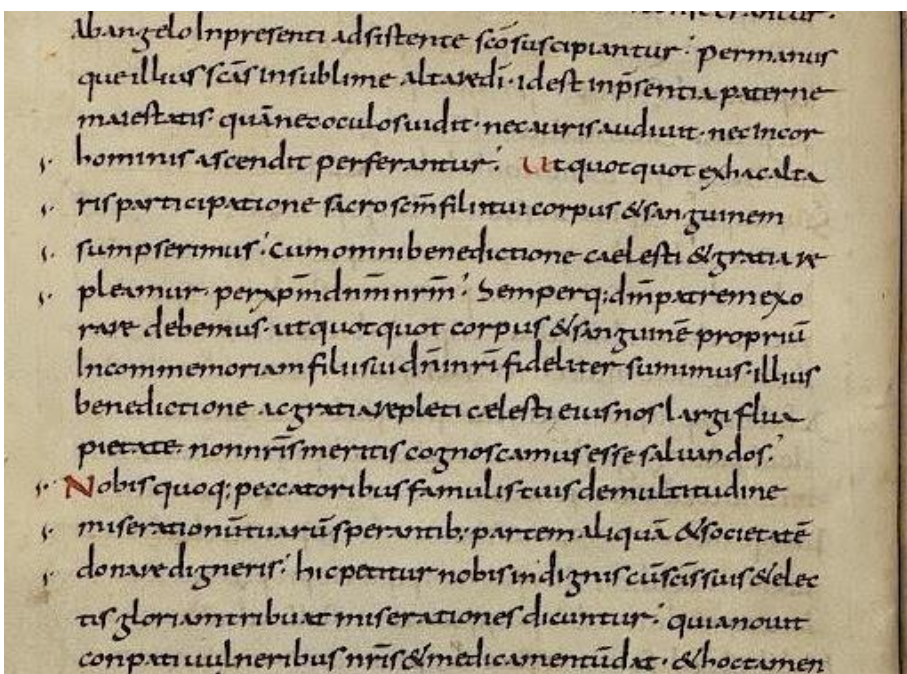 Ab angelo In presenti adsistente sco suscipiantur. Per manus
que illius scas In sublime altare di. id est in psentia paterne
maiestatis. quā nec oculos uidit. nec auris audiuit. nec In cor
hominis ascendit perferantur. Ut quotquot ex hac alta
ris participatione sacrosēm filii tui corpus & sanguinem
sumpserimus. cum omni benedictione caelesti & gratia re
pleamur. per xpm dnm nrm. Semperq; dm patrem exo
rare debemus. ut quotquot corpus & sanguinē propriū
In commemoriam filii sui dni nri fideliter sumimus. illius
benedictione ac gratia repleti cælesti eius nos largiflua
pietate. non nris meritis cognoscamus esse saluandos.
Nobis quoq; peccatoribus famulis tuis de multitudine
miserationū tuarū sperantib; partem aliquā & societatē
donare digneris. hic petitur nobis indignis cū scis suis & elec
tis gloriam tribuat miserationes dicuntur. quia nouit
conpati uulneribus nris & medicamentū dat. & hoc tamen